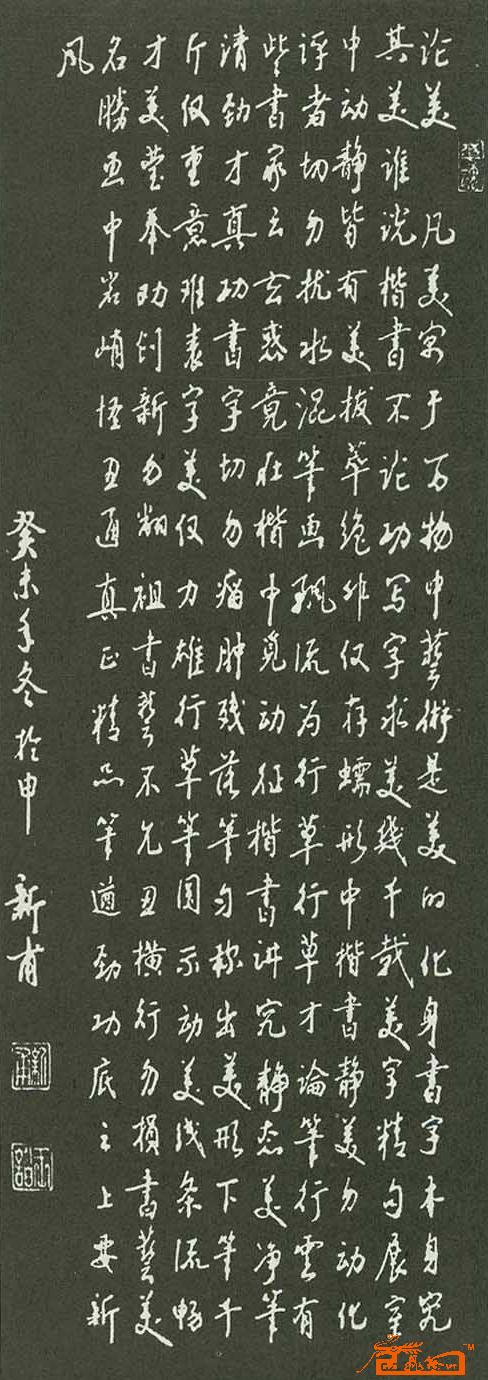 论美 凡美寓于万物中艺术是美的化身书字本身究
其美谁说楷书不论功写字求美几千载美字精句展室
中动静皆有美拔萃绝非仅存蠕形中楷书静美勿动化
评者切勿扰水混笔画飘流为行草行草才论笔行云有
些书家云玄惑竟在楷中觅动征楷书讲究静态美净笔
清劲才真功书字切勿痈肿残落笔匀称出美形下笔千
斤仅重意难表字美仅力雄行草笔圆示动美线条流畅
才美莹奉劝创新勿糊祖书艺不允丑横行勿损书艺美
名胜画中岩峭怪丑通真正精品笔遒劲功底之上要新
风
癸未年冬于申 新甫